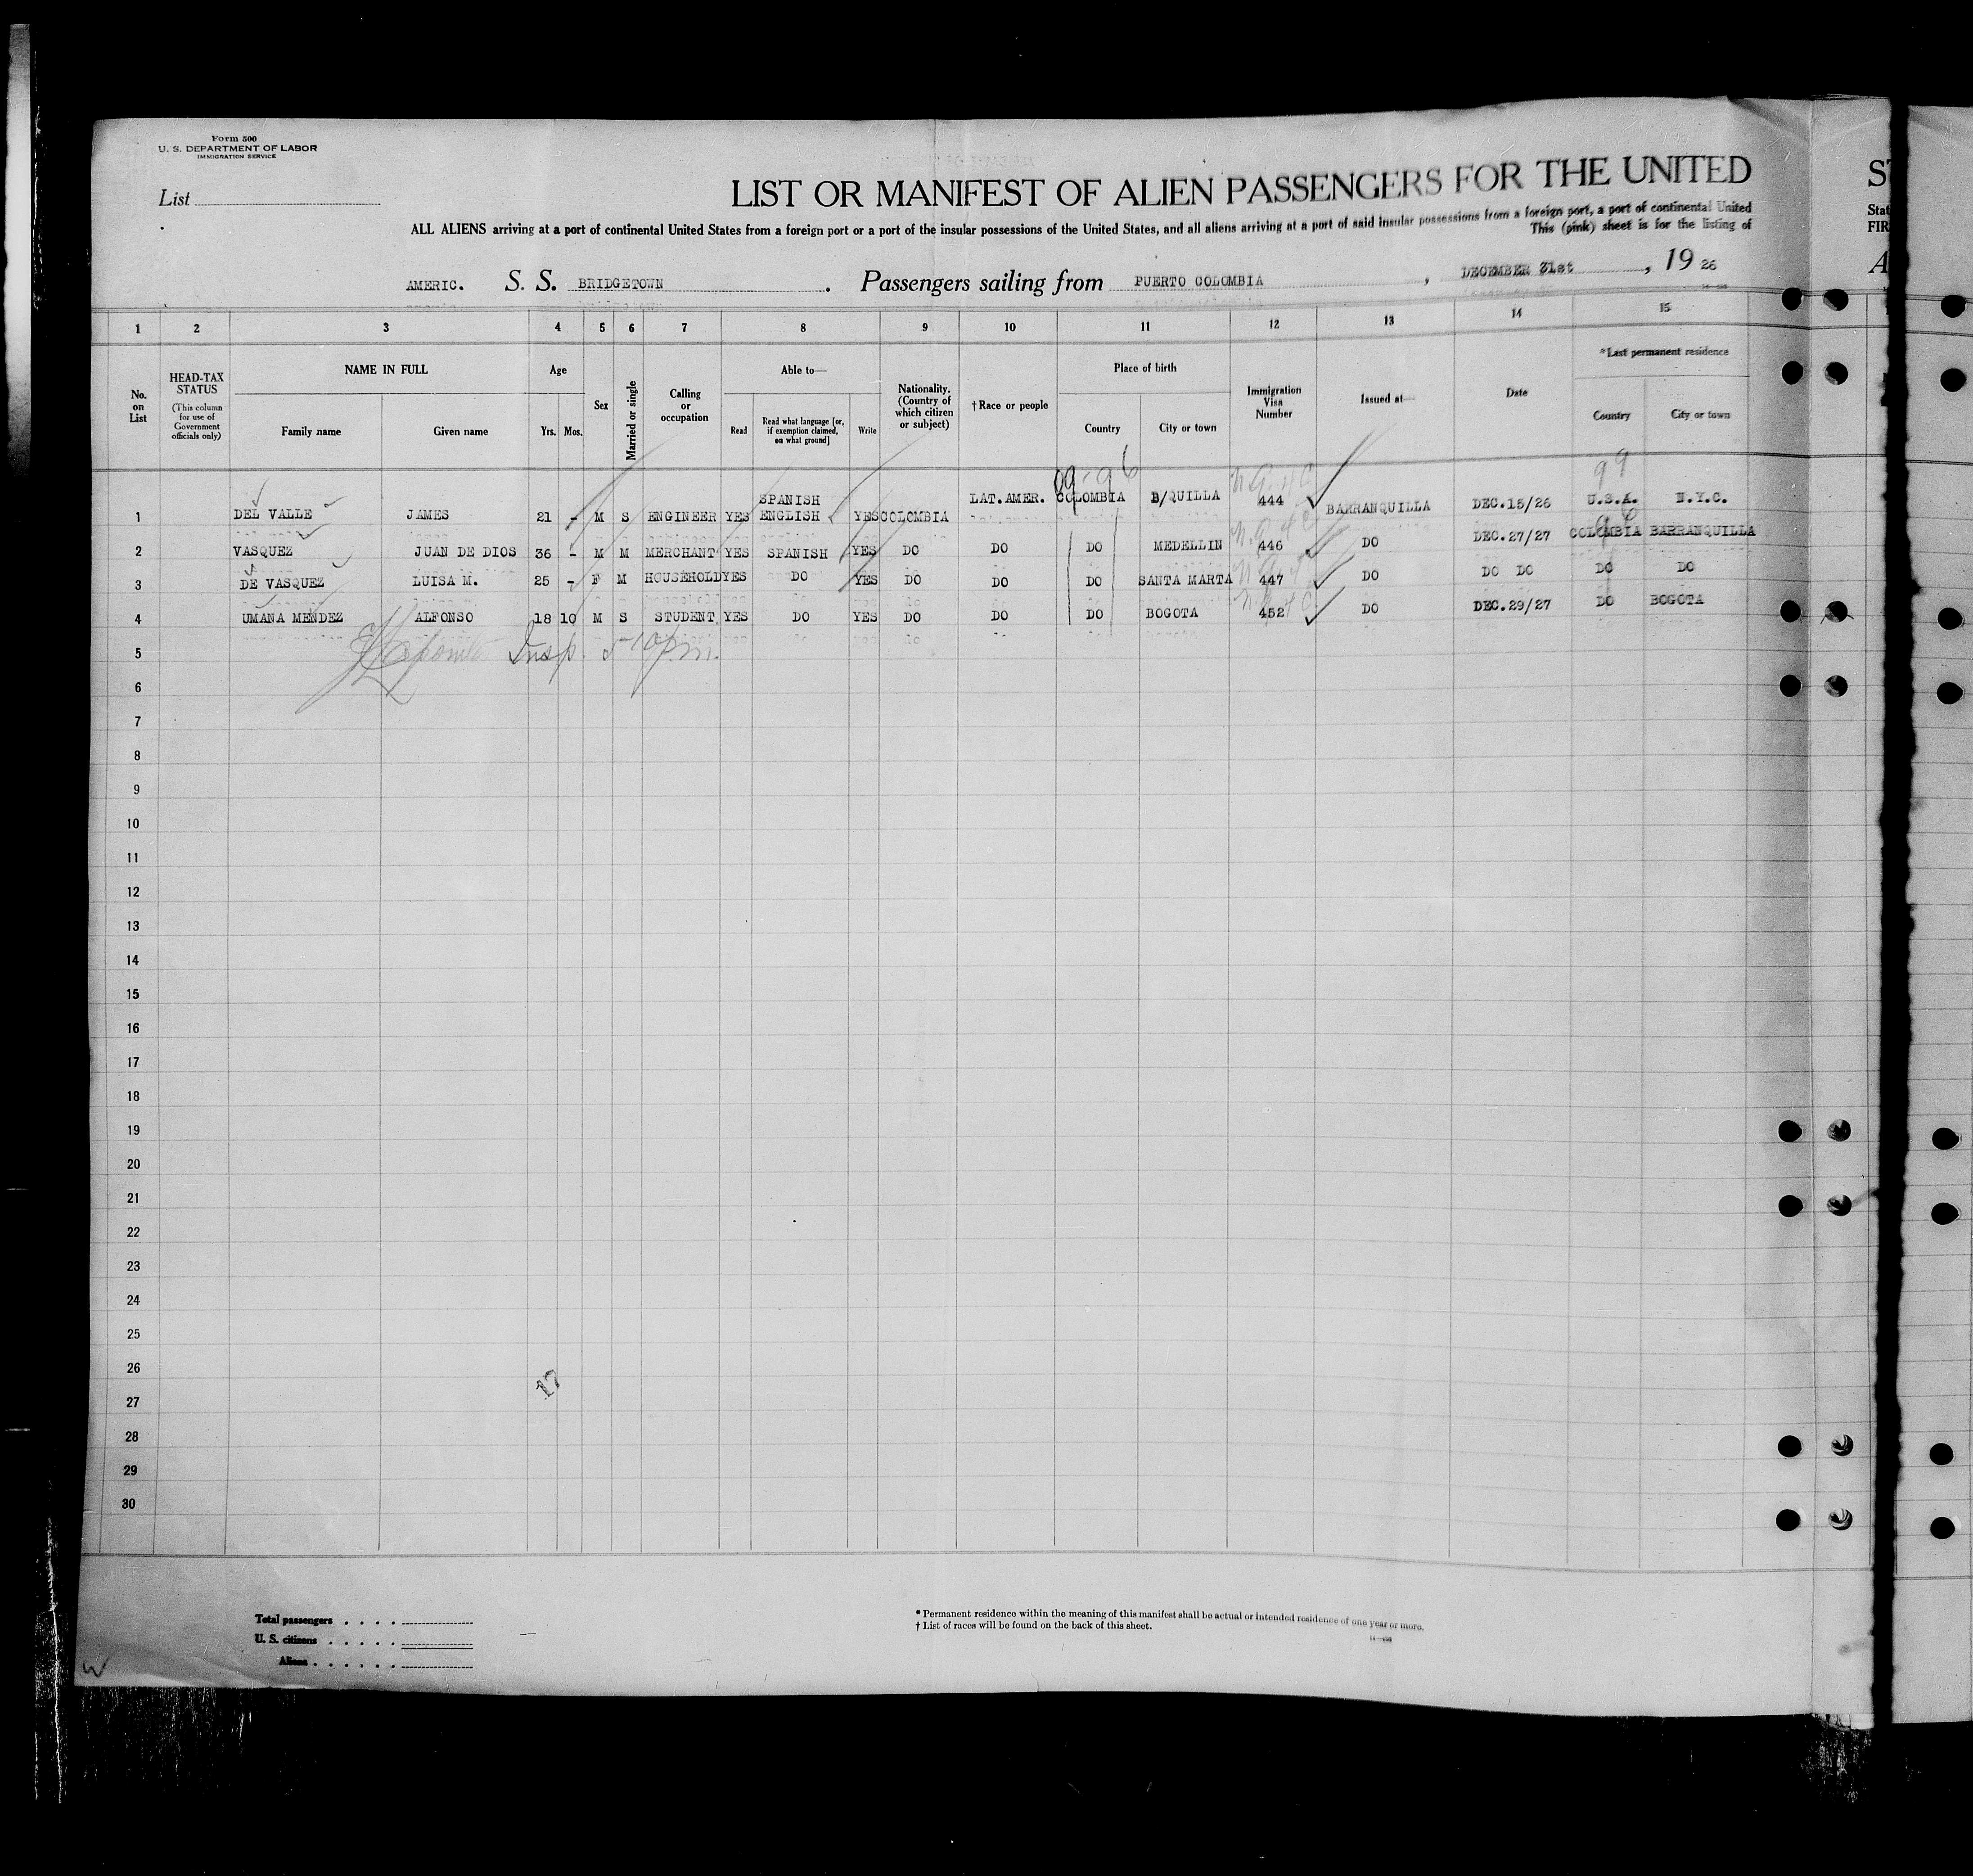 Form 500
U. S. DEPARTMENT OF LABOR
IMMIGRATION SERVICE
List
LIST OR MANIFEST OF ALIEN PASSENGERS FOR THE UNITED
ALL ALIENS arriving at a port of continental United States from a foreign port or a port of the insular possessions of the United States, and all aliens arriving at a port of said insular possessions from a foreign port, a port of continental United
This (pink) sheet is for the listing of
AMERIC. S. S. BRIDGETOWN. Passengers sailing from PUERTO COLOMBIA, DECEMBER 31st, 19 26
1 2 3 4 5 6 7 8 9 10 11 12 13 14 15
No. on List
HEAD-TAX STATUS
(This column for use of Government officials only)
NAME IN FULL
Family name Given name
Age
Yrs. Mos.
Sex
Married or single
Calling or occupation
Able to—
Read
Read what language [or, if exemption claimed, on what ground]
Write
Nationality. (Country of which citizen or subject)
†Race or people
Place of birth
Country City or town
Immigration Visa Number
Issued at—
Date
*Last permanent residence
Country City or town
1 DEL VALLE JAMES 21 - M S ENGINEER YES SPANISH ENGLISH YES COLOMBIA LAT.AMER. COLOMBIA B/QUILLA 444 BARRANQUILLA DEC.15/26 U.S.A. N.Y.C.
2 VASQUEZ JUAN DE DIOS 36 - M M MERCHANT YES SPANISH YES DO DO DO MEDELLIN 446 DO DEC.27/27 COLOMBIA BARRANQUILLA
3 DE VASQUEZ LUISA M. 25 - F M HOUSEHOLD YES DO YES DO DO DO SANTA MARTA 447 DO DO DO DO DO
4 UMANA MENDEZ ALFONSO 18 10 M S STUDENT YES DO YES DO DO DO BOGOTA 452 DO DEC.29/27 DO BOGOTA
Insp. 5 10 p.m.
5
6
7
8
9
10
11
12
13
14
15
16
17
18
19
20
21
22
23
24
25
26
17
27
28
29
30
Total passengers
U. S. citizens
Aliens
* Permanent residence within the meaning of this manifest shall be actual or intended residence of one year or more.
† List of races will be found on the back of this sheet.